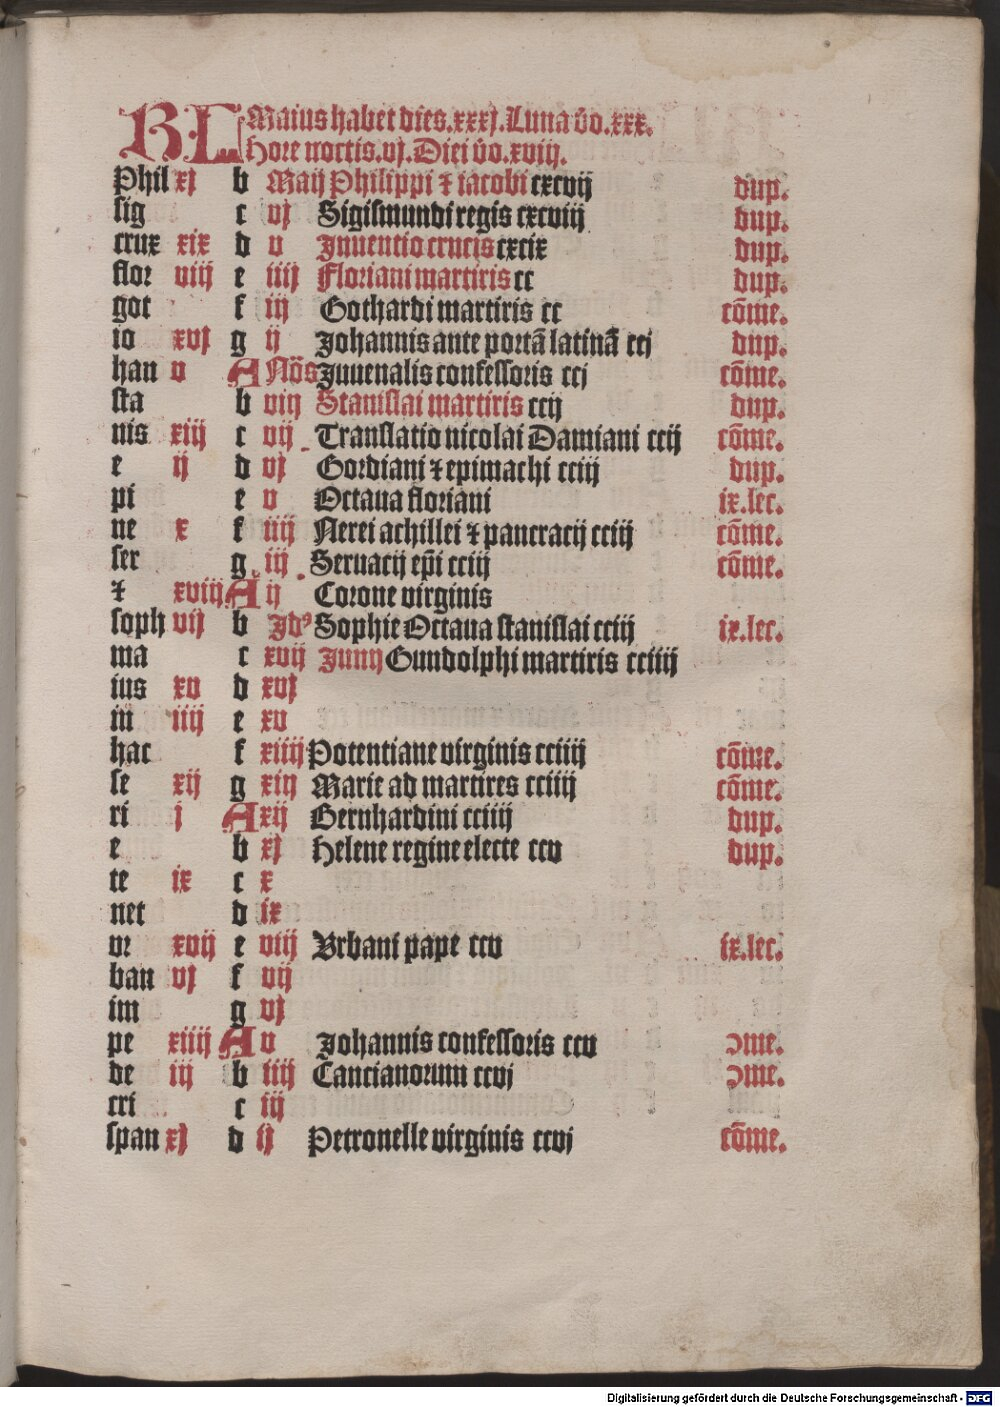 KL Maius habet dies.xxxj.Luna v̄o.xxx.
Hore noctis.vj.Diei v̄o.xviij.
Phil xj b Maij Philippi ⁊ iacobi cxcvij dup.
sig c vj Sigismundi regis cxcviij dup.
crux xix d v Inuentio crucis cxcix dup.
flor viij e iiij Floriani martiris cc dup.
got f iij Gothardi martiris cc cōme.
io xvj g ij Johannis ante portā latinā ccj dup.
han v A Nōs Juuenalis confessoris ccj cōme.
sta b viij Stanislai martiris ccij dup.
nis xiij c vij Translatio nicolai Damiani ccij cōme.
e ij d vj Gordiani ⁊ epimachi cciij dup.
pi e v Octaua floriani ix.lec.
ne x f iiij Nerei achillei ⁊ pancracij cciij cōme.
ser g iij Seruacij ep̄i cciij cōme.
⁊ xviij A ij Corone virginis
soph vij b Idꝰ Sophie Octaua stanislai cciij ix.lec.
ma c xvij Junij Gundolphi martiris cciiij
ius xv d xvj
in iiij e xv
hac f xiiij Potentiane virginis cciiij cōme.
se xij g xiij Marie ad martires cciiij cōme.
ri j A xij Bernhardini cciiij dup.
e b xj Helene regine electe ccv dup.
te ix c x
net d ix
vr xvij e viij Vrbani pape ccv ix.lec.
ban vj f vij
im g vj
pe xiiij A v Johannis confessoris ccv ꝯme.
de iij b iiij Cancianorum ccvj ꝯme.
cri c iij
span xj d ij Petronelle virginis ccvj cōme.
Digitalisierung gefördert durch die Deutsche Forschungsgemeinschaft - DFG